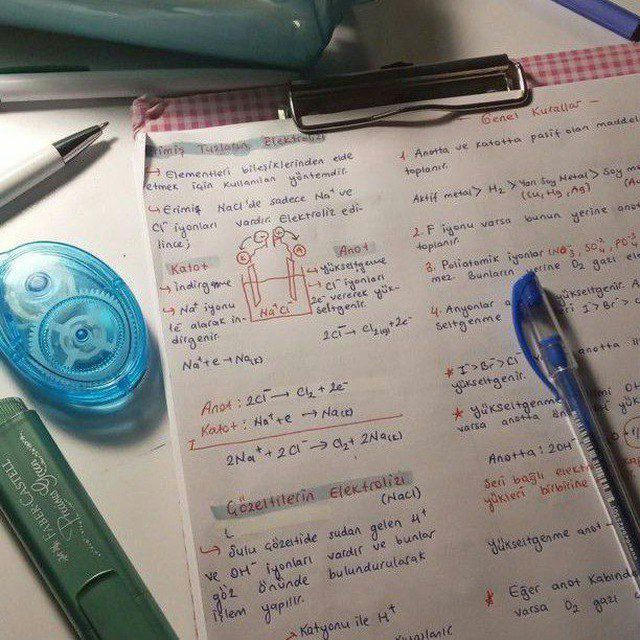 Erimiş Tuzların Elektrolizi
→ Elementleri bileşiklerinden elde
etmek için kullanılan yöntemdir.
→ Erimiş NaCl'de sadece Na⁺ ve
Cl⁻ iyonları vardır. Elektroliz edi-
lince;
Katot
→ İndirgenme
→ Na⁺ iyonu
1e⁻ alarak in-
dirgenir.
Na⁺+e → Na(k)
Na⁺Cl⁻
Anot
→ Yükseltgenme
→ Cl⁻ iyonları
2e⁻ vererek yük-
seltgenir.
2Cl⁻ → Cl₂(g)+2e⁻
Anot: 2Cl⁻ → Cl₂ + 2e⁻
Katot: Na⁺+e → Na(k)
2Na⁺ + 2Cl⁻ → Cl₂ + 2Na(k)
Çözeltilerin Elektrolizi
(NaCl)
→ Sulu çözeltide sudan gelen H⁺
ve OH⁻ iyonları vardır ve bunlar
göz önünde bulundurularak
işlem yapılır.
→ Katyonu ile H⁺
- Genel Kurallar -
1. Anotta ve katotta pasif olan
toplanır.
Aktif metal > H₂ > Yarı Soy Metal > Soy
(Cu, Hg, Ag)
2. F iyonu varsa bunun yerine
toplanır.
3. Poliatomik iyonlar (NO₃⁻, SO₄⁻², PO₄⁻³
mez. Bunların yerine O₂ gazı
4. Anyonlar yükseltgenir.
seltgenme I > Br⁻ >
* I > Br⁻ > Cl⁻ anotta
yükseltgenir.
* Yükseltgenme
varsa anotta
Anotta: 2OH⁻
Seri bağlı
yükleri birbirine
Yükseltgenme anot
* Eğer anot kabında
varsa O₂ gazı
FABER-CASTELL